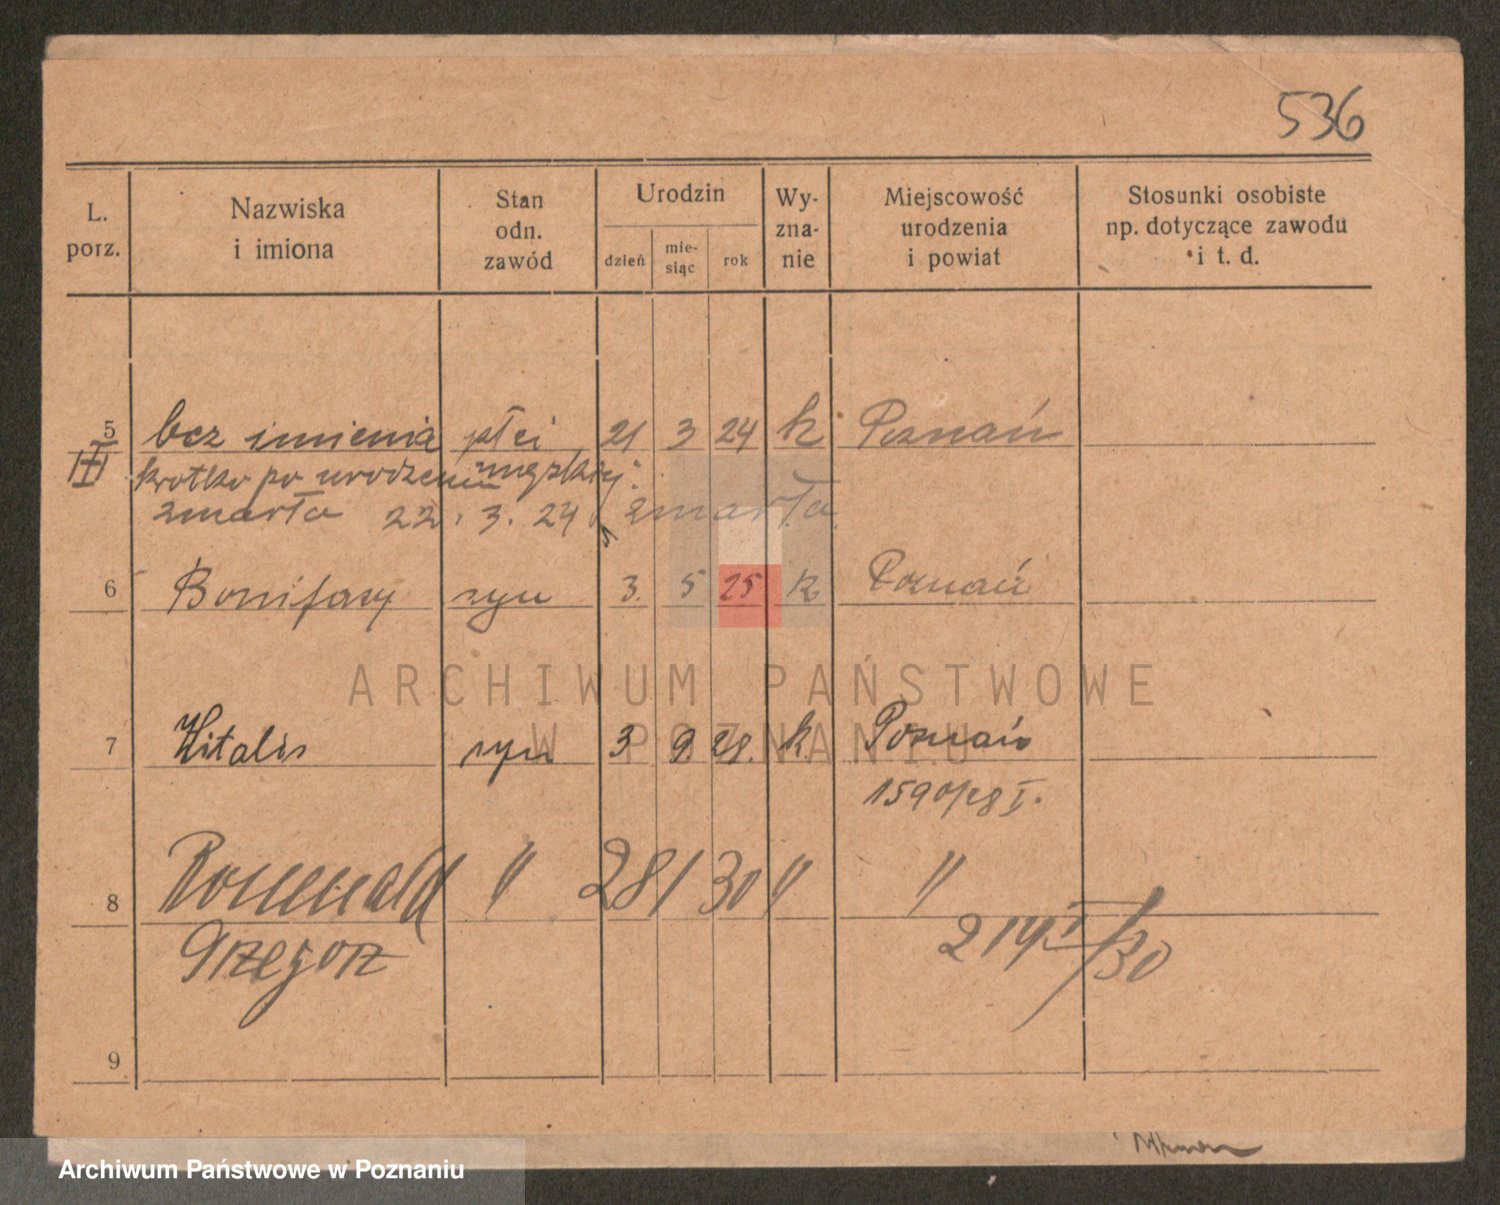 536
L. porz.
Nazwiska i imiona
Stan odn. zawód
Urodzin
dzień
mie-siąc
rok
Wy-zna-nie
Miejscowość urodzenia i powiat
Stosunki osobiste np. dotyczące zawodu i t. d.
5 bez imienia płci 21 3 24 k Poznań
krotko po urodzeniu męzkiej
zmarło 22. 3. 24 zmarła
6 Bonifacy syn 3. 5 25 k Poznań
ARCHIWUM PAŃSTWOWE
W POZNANIU
7 Witalis syn 3 9. 28. k. Poznań
1590/28 I.
8 Romuald " 28 1 30 " "
Grzegorz 214 I/30
9
Archiwum Państwowe w Poznaniu